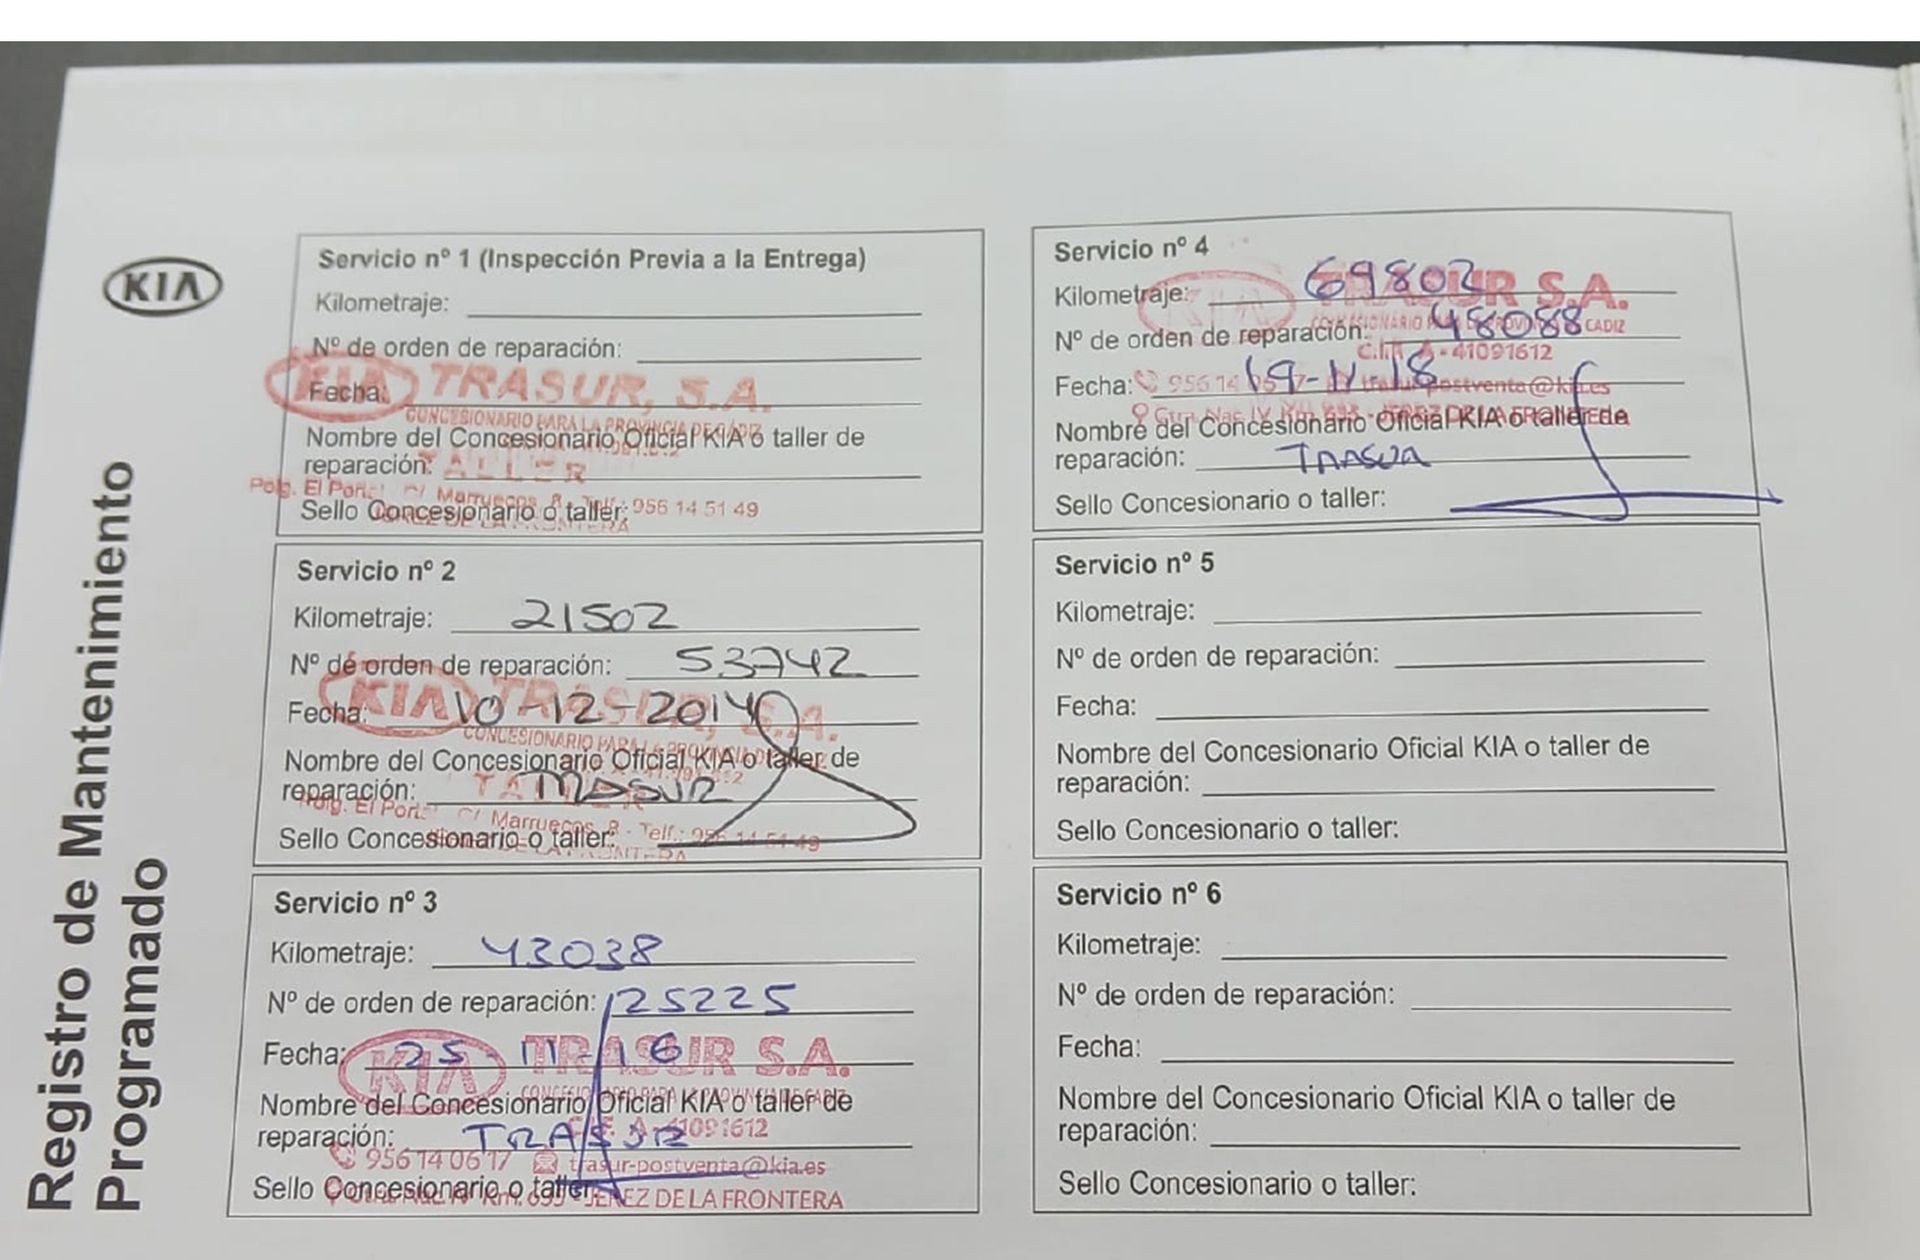 Registro de Mantenimiento
Programado
KIA
Servicio nº 1 (Inspección Previa a la Entrega)
Kilometraje:
Nº de orden de reparación:
Fecha:
KIA TRASUR, S.A.
CONCESIONARIO PARA LA PROVINCIA DE CÁDIZ
Nombre del Concesionario Oficial KIA o taller de
reparación:
TALLER
Polg. El Portal C/ Marruecos, 8 - Telf.: 956 14 51 49
Sello Concesionario o taller:
JEREZ DE LA FRONTERA
Servicio nº 2
Kilometraje: 21502
Nº de orden de reparación: 53742
Fecha: 10-12-2014
KIA TRASUR, S.A.
CONCESIONARIO PARA LA PROVINCIA DE
Nombre del Concesionario Oficial KIA o taller de
reparación: TRASUR
TALLER
Polg. El Portal C/ Marruecos, 8 - Telf.: 956 14 51 49
Sello Concesionario o taller:
JEREZ DE LA FRONTERA
Servicio nº 3
Kilometraje: 43038
Nº de orden de reparación: 25225
Fecha: 25 16
KIA TRASUR S.A.
CONCESIONARIO PARA LA PROVINCIA DE CADIZ
Nombre del Concesionario Oficial KIA o taller de
C.I.F. A-41091612
reparación: TRASUR
956 14 06 17 trasur-postventa@kia.es
Sello Concesionario o taller:
Ctra. Nac. IV Km. 635 - JEREZ DE LA FRONTERA
Servicio nº 4
Kilometraje: 69802
KIA TRASUR S.A.
CONCESIONARIO PARA LA PROVINCIA DE CADIZ
Nº de orden de reparación: 48088
C.I.F. A - 41091612
Fecha: 19-11-18
956 14 06 17 trasur-postventa@kia.es
Ctra. Nac. IV Km. 635 - JEREZ DE LA FRONTERA
Nombre del Concesionario Oficial KIA o taller de
reparación: TRASUR
Sello Concesionario o taller:
Servicio nº 5
Kilometraje:
Nº de orden de reparación:
Fecha:
Nombre del Concesionario Oficial KIA o taller de
reparación:
Sello Concesionario o taller:
Servicio nº 6
Kilometraje:
Nº de orden de reparación:
Fecha:
Nombre del Concesionario Oficial KIA o taller de
reparación:
Sello Concesionario o taller: